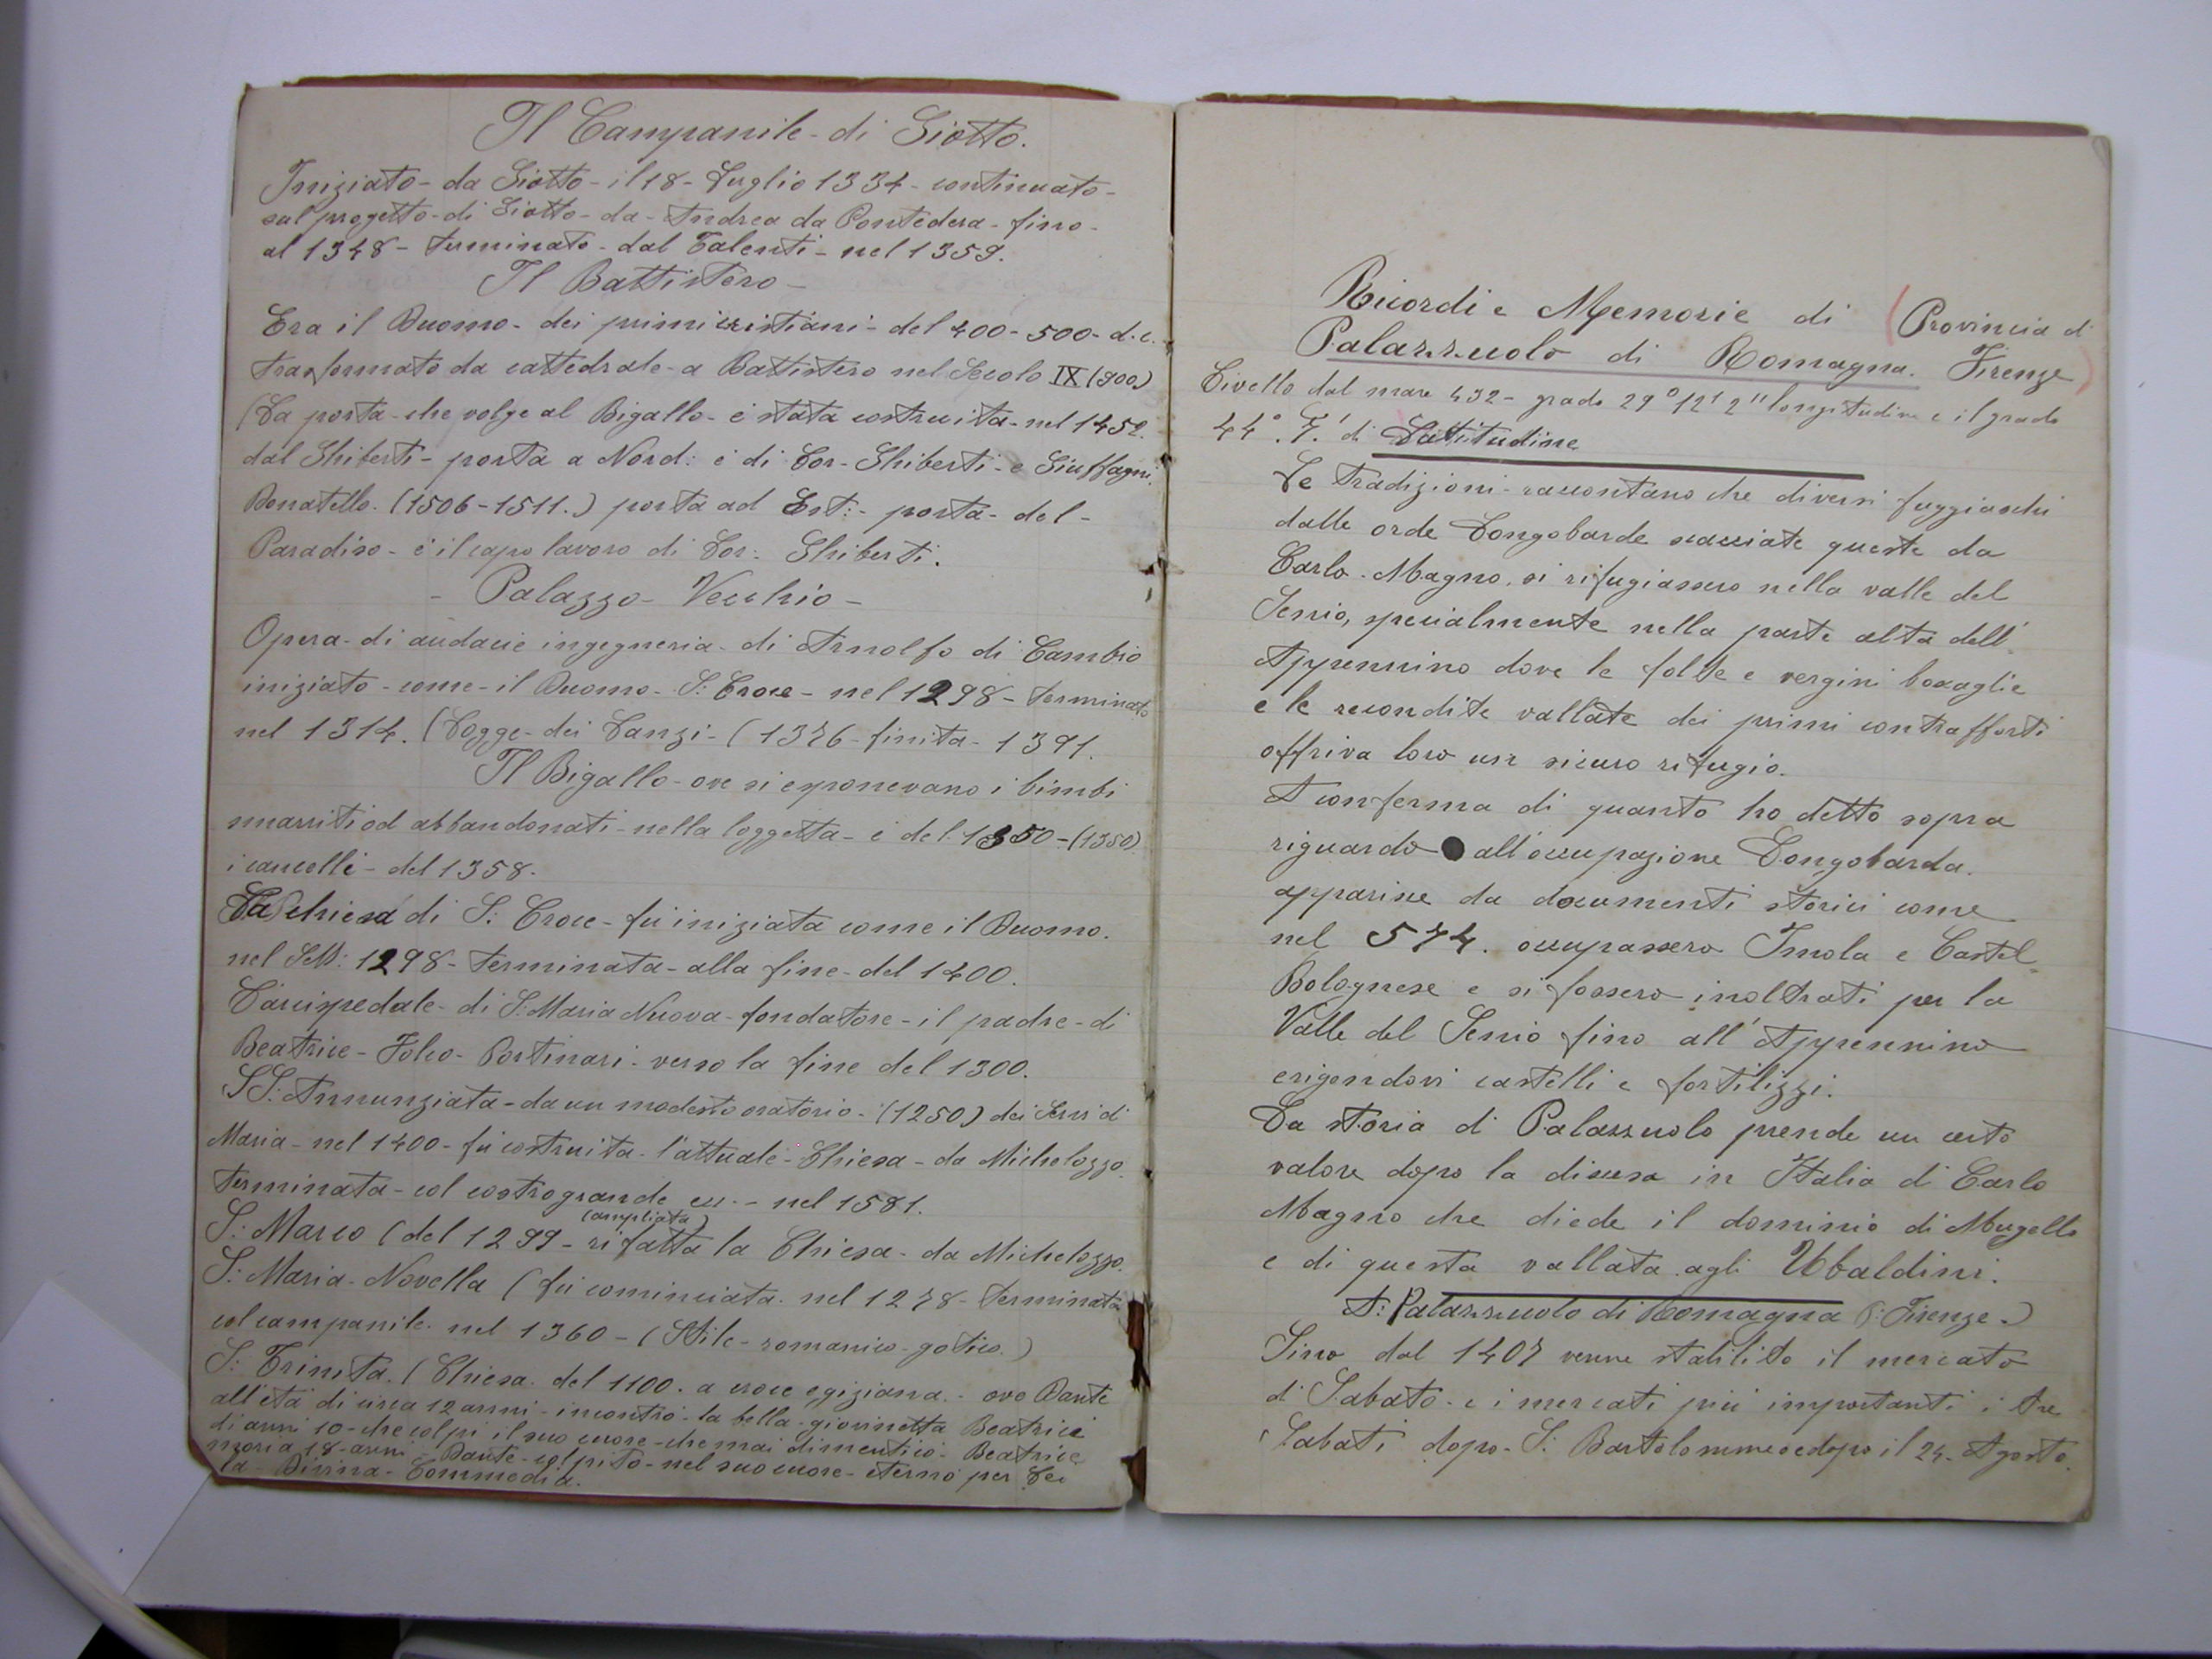 Il Campanile - di Giotto.
Iniziato - da Giotto - il 18 - Luglio 1334 - continuato -
sul progetto - di Giotto - da - Andrea da Pontedera - fino -
al 1348 - terminato - dal Talenti - nel 1359.
Il Battistero -
Era il Duomo - dei primi cristiani - del 400 - 500 - d.c.
trasformato da cattedrale - a Battistero nel Secolo IX (900)
(La porta - che volge al Bigallo - è stata costruita - nel 1452.
dal Ghiberti - porta a Nord: è di Lor - Ghiberti - e Giuffagni.
Donatello. (1506 - 1511.) porta ad Est: - porta - del -
Paradiso - è il capo lavoro di Lor: Ghiberti.
- Palazzo - Vecchio -
Opera - di audacie ingegneria - di Arnolfo di Cambio
iniziato - come - il Duomo - S: Croce - nel 1298 - terminato
nel 1314. (Logge - dei Lanzi - (1376 - finita - 1391.
Il Bigallo - ove si esponevano i bimbi
smarriti od abbandonati - nella loggetta - è del 1350 - (1350)
i cancelli - del 1358.
La Chiesa di S: Croce - fù iniziata come il Duomo.
nel 1298 - terminata - alla fine - del 1400.
L'arcispedale - di S: Maria Nuova - fondatore - il padre - di
Beatrice - Folco - Portinari - verso la fine del 1300.
SS: Annunziata - da un modesto oratorio - (1250) dei Servi di
Maria - nel 1400 - fù costruita - l'attuale - Chiesa - da Michelozzo.
terminata - col costro grande - nel 1581.
(ampliata)
S: Marco (del 1299 - rifatta la Chiesa - da Michelozzo.
S: Maria - Novella (fù cominciata. nel 1278 - terminata
col campanile. nel 1360 - (Stile - romanico - gotico.)
S: Trinita. (Chiesa. del 1100. a croce egiziana. - ove Dante
all'età di circa 12 anni - incontrò - la bella - giovinetta Beatrice
di anni 10 - che colpi il suo cuore - che mai dimenticò - Beatrice
moria 18 - anni - Dante - colpito - nel suo cuore - eternò per Lei
la - Divina - Commedia.
Ricordi e Memorie di (Provincia di
Palazzuolo di Romagna. Firenze)
Livello dal mare 432 - grado 29° 12' 2'' longitudine e il grado
44°. 7.' di Lattitudine
Le tradizioni - raccontano che diversi fuggiaschi
dalle orde Longobarde scacciate queste da
Carlo - Magno, si rifugiassero nella valle del
Senio, specialmente nella parte alta dell'
Appennino dove le folte e vergini boscaglie
e le recondite vallate dei primi contrafforti
offriva loro un sicuro rifugio.
A conferma di quanto ho detto sopra
riguardo all'occupazione Longobarda.
apparisce da documenti storici come
nel 574. occupassero Imola e Castel
Bolognese e si fossero inoltrati per la
Valle del Senio fino all'Appennino
erigendovi castelli e fortilizzi.
La storia di Palazzuolo prende un certo
valore dopo la discesa in Italia di Carlo
Magno che diede il dominio di Mugello
e di questa vallata agli Ubaldini.
A: Palazzuolo di Romagna (: Firenze.)
Sino dal 1407 venne stabilito il mercato
di Sabato - e i mercati più importanti i tre
Sabati dopo - S: Bartolommeo e dopo il 24 - Agosto.